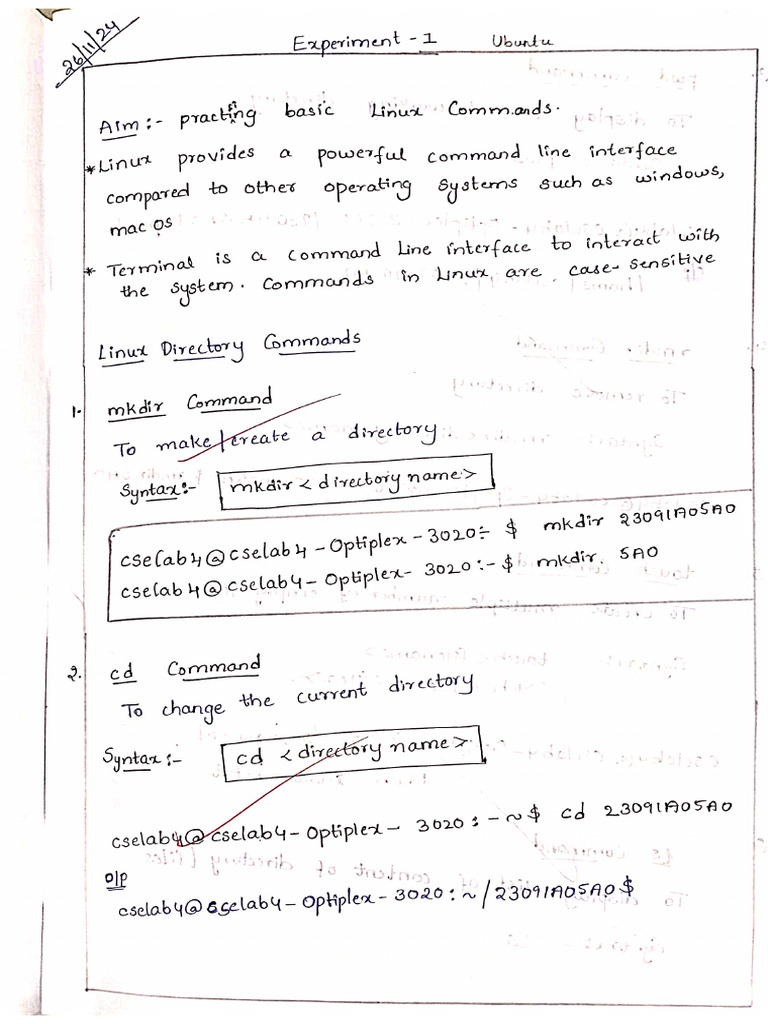 26/11/24
Experiment - 1 Ubuntu
Aim :- practing basic Linux Commands.
* Linux provides a powerful command line interface
compared to other operating systems such as windows,
mac os
* Terminal is a command Line interface to interact with
the system. Commands in Linux are case-sensitive
Linux Directory Commands
1. mkdir Command
To make/create a directory
Syntax:- mkdir < directory name >
cselab4@cselab4-Optiplex-3020:- $ mkdir 23091A05A0
cselab4@cselab4-Optiplex-3020:-$ mkdir. 5A0
2. cd Command
To change the current directory
Syntax :- cd < directory name >
cselab4@cselab4-Optiplex-3020:-~$ cd 23091A05A0
o/p
cselab4@cselab4-Optiplex-3020:~/23091A05A0$